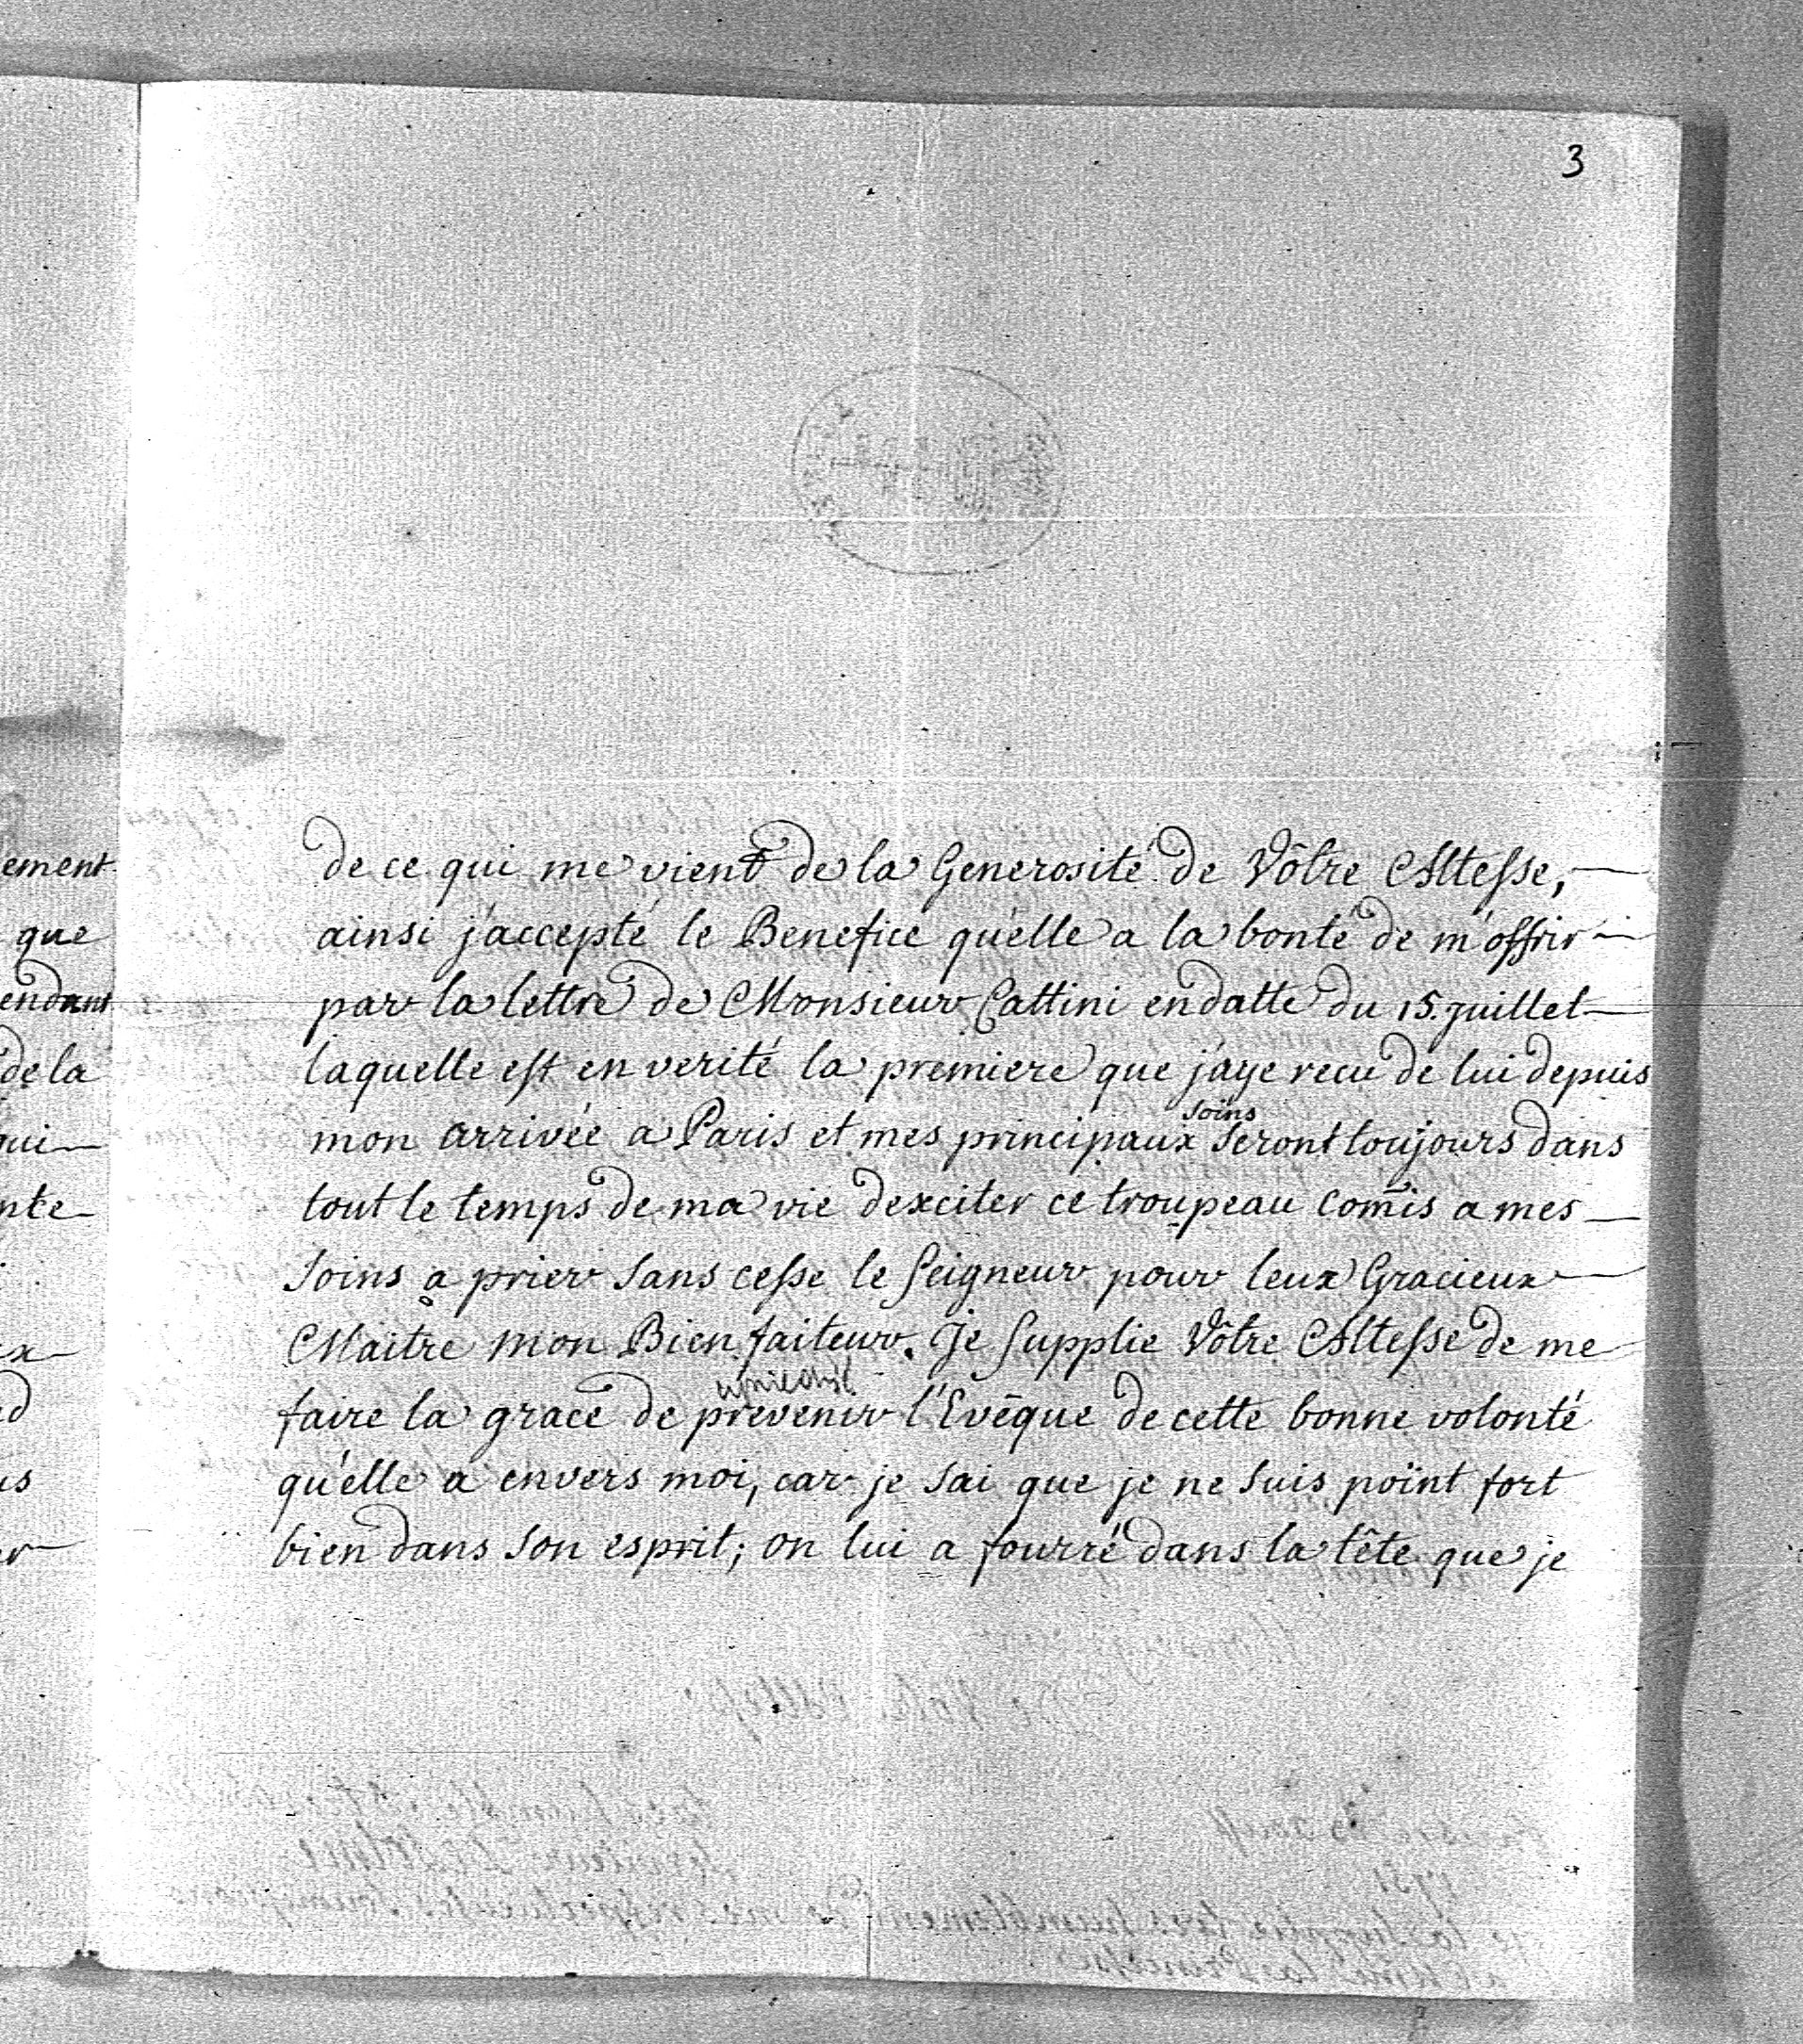 3
de ce qui me vient de la Generosité de Vôtre Altesse,
ainsi j'accepté le Benefice qu'elle a la bonté de m'offrir
par la lettre de Monsieur Cattini en datte du 15. Juillet
laquelle est en verité la premiere que j'aye recu de lui depuis
mon arrivée a Paris et mes principaux soins seront toujours dans
tout le temps de ma vie d'exciter ce troupeau com̄is a mes
soins a prier sans cesse le Seigneur pour leux Gracieux
Maitre mon Bienfaiteur. Je supplie Vôtre Altesse de me
faire la grace de prevenir l'Evêque de cette bonne volonté
qu'elle a envers moi, car je sai que je ne suis point fort
bien dans son esprit; on lui a fourré dans la tête que je
ement
que
endant
de la
qui
nte
x
d
us
er